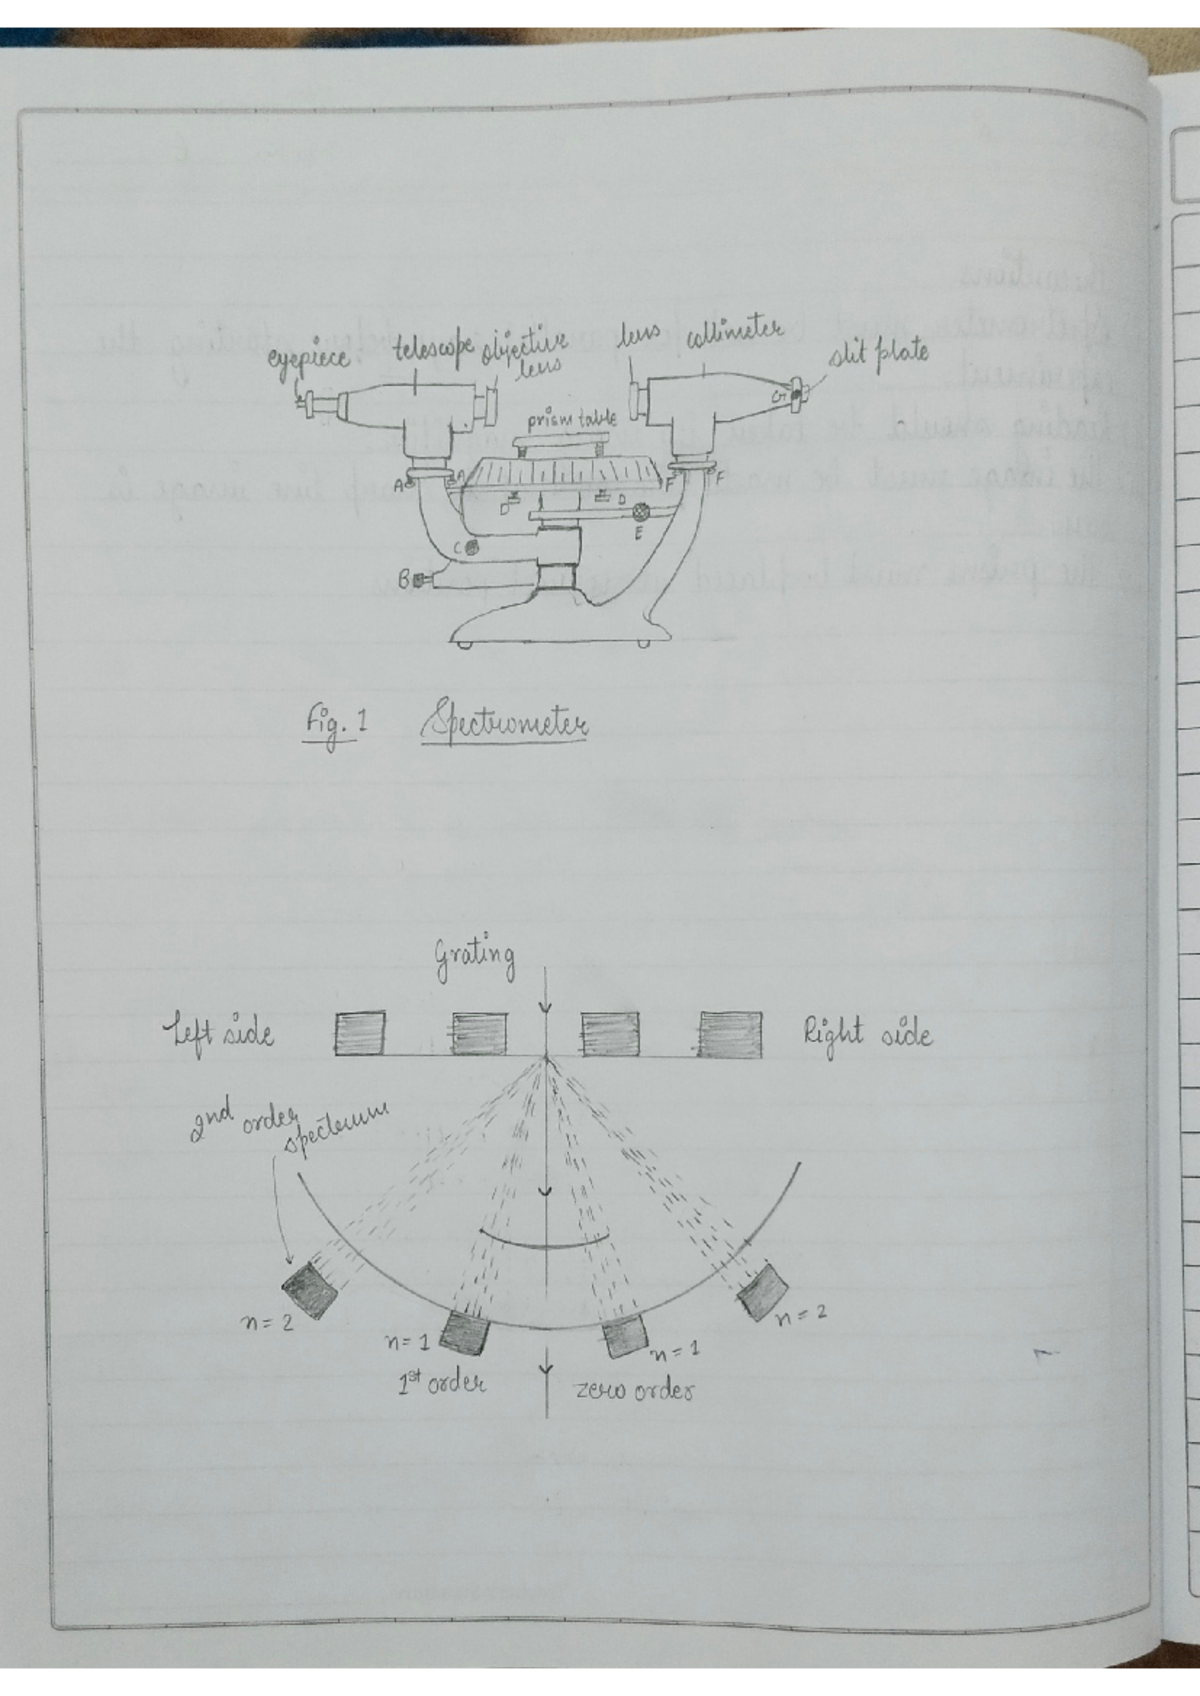 eyepiece
telescope
objective
lens
lens
collimeter
slit plate
prism table
G
A
A
F
F
D
D
E
C
B
Fig. 1 Spectrometer
Grating
Left side
Right side
2nd order
spectrum
n=2
n=1
n=1
n=2
1st order
zero order